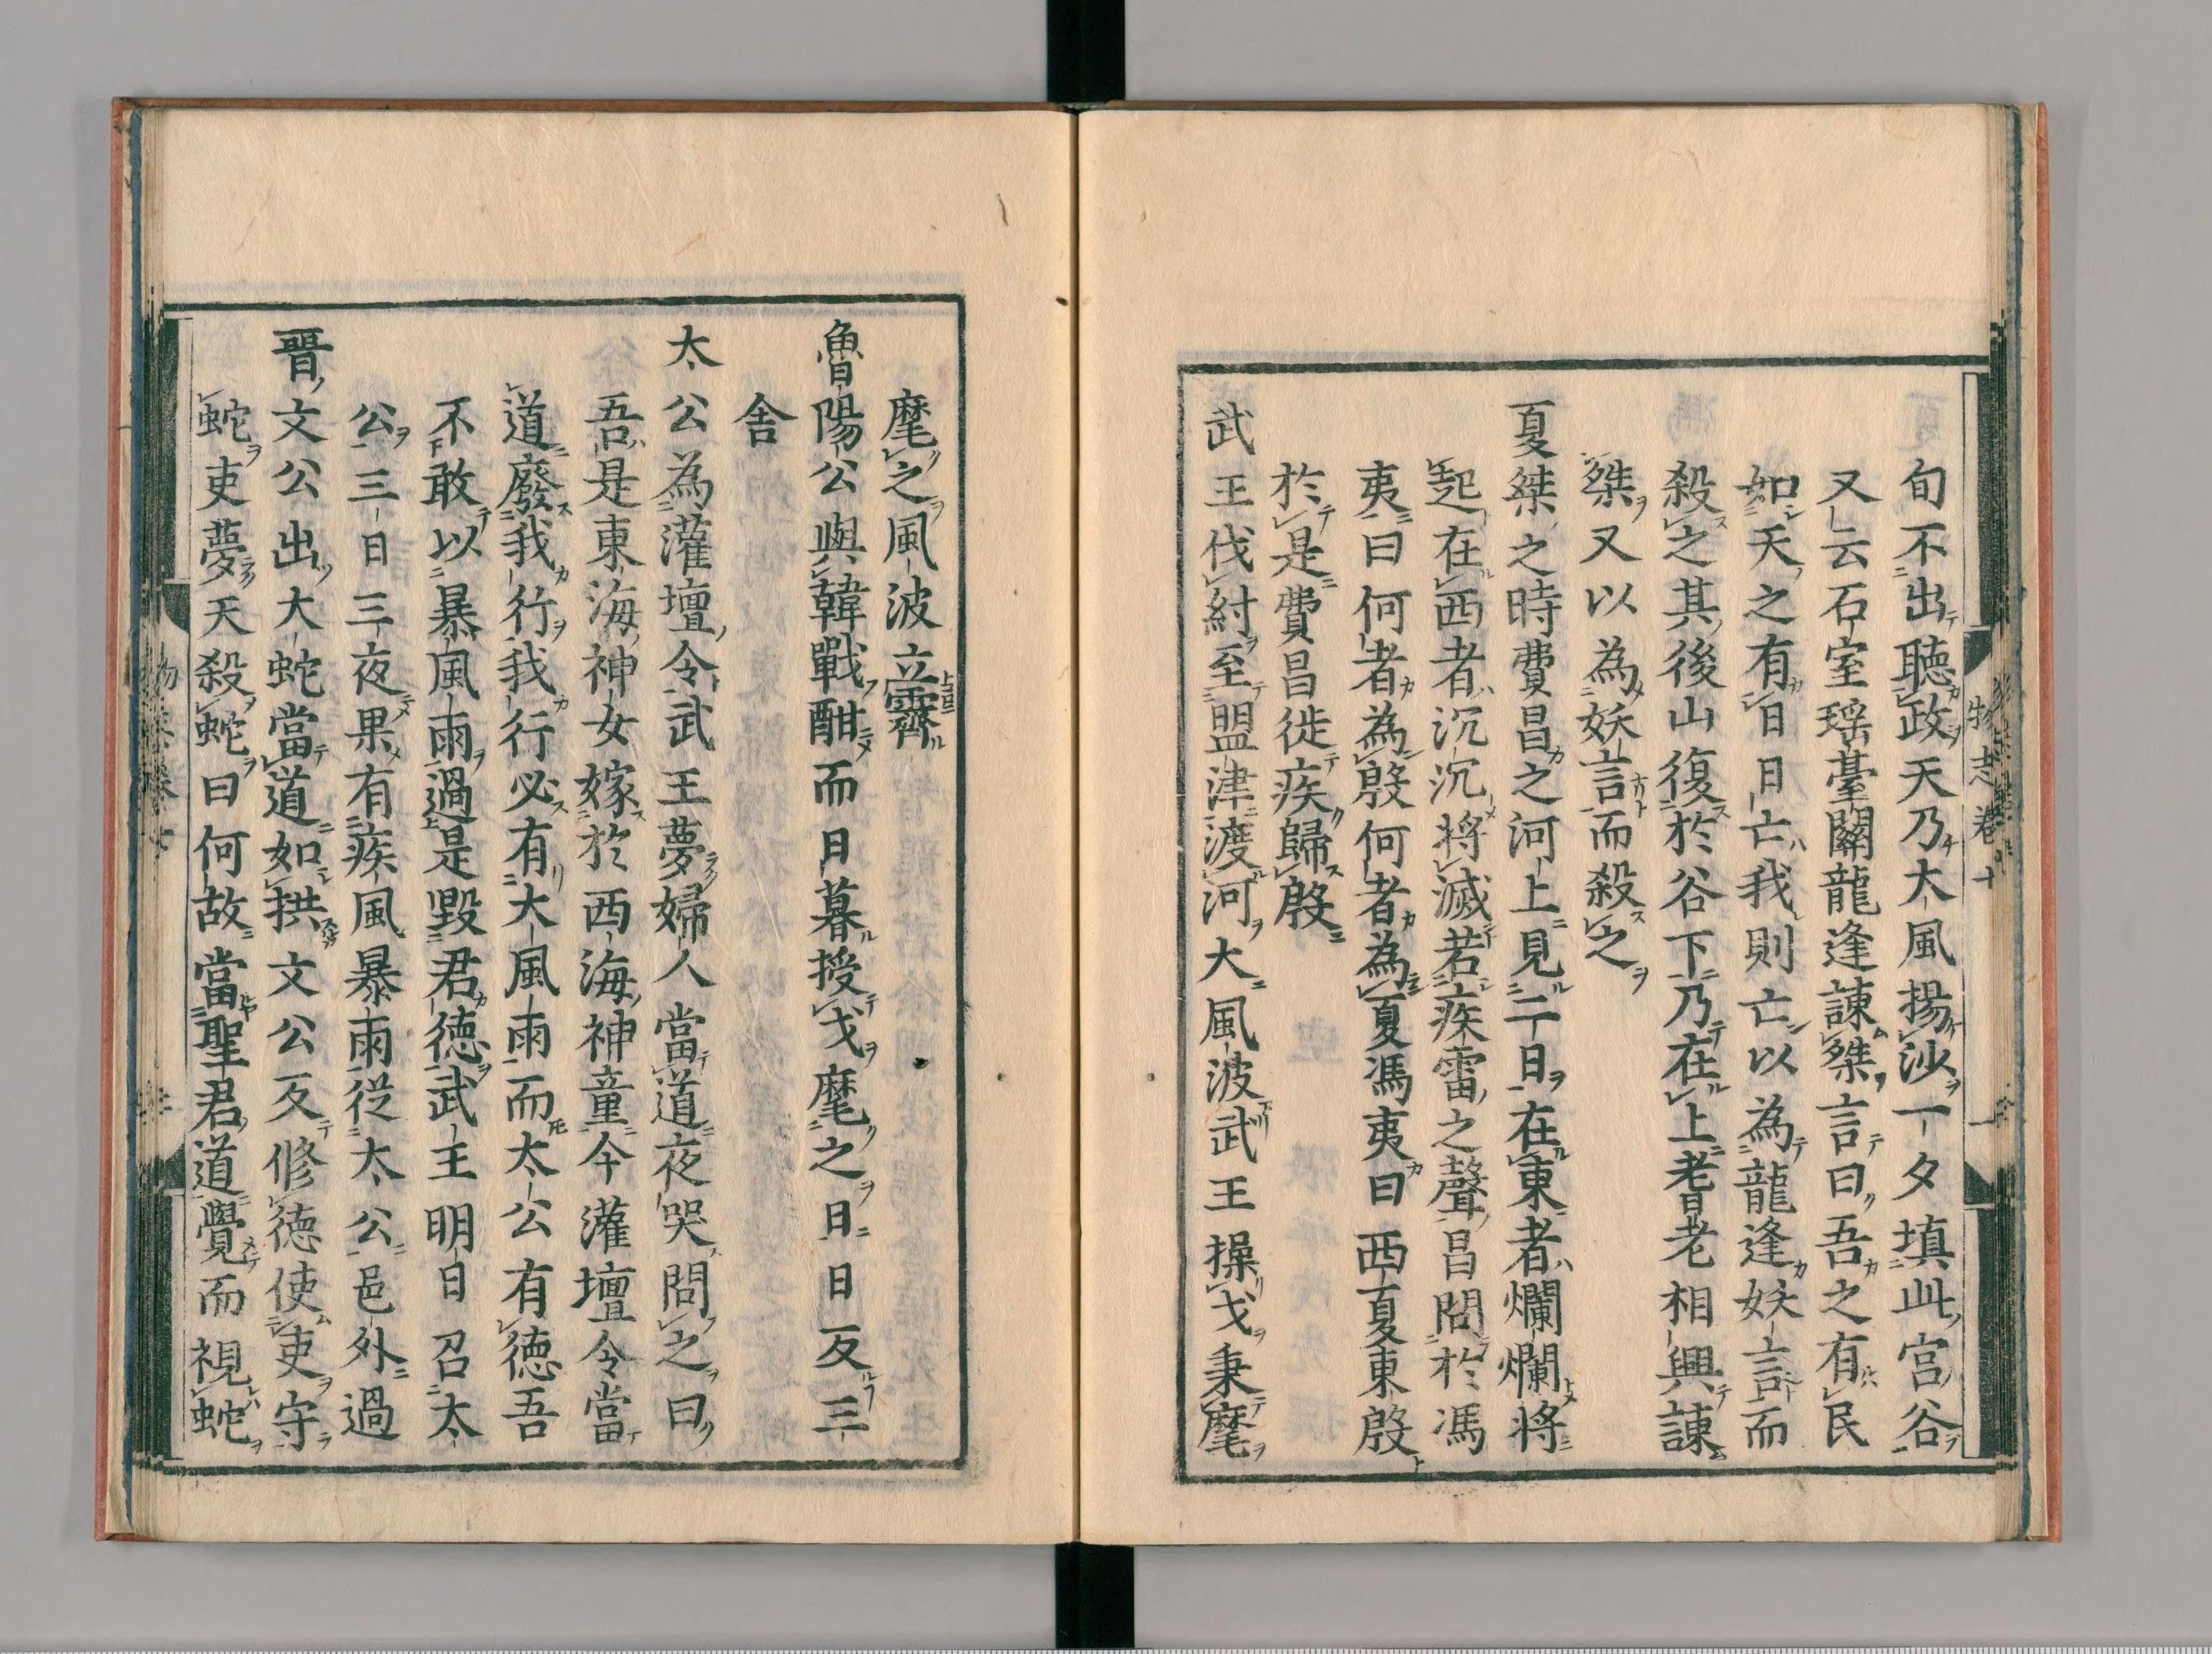 旬不出聴政天乃大風揚沙一夕填此宮谷
又云石室瑶臺關龍逢諌桀言曰吾之有民
如天之有日日亡我則亡以為龍逢妖言而
殺之其後山復於谷下乃在上耆老相與諌
桀又以為妖言而殺之
夏桀之時費昌之河上見二日在東者爛爛將
起在西者沉沉將滅若疾雷之聲昌問於馮
夷曰何者為殷何者為夏馮夷曰西夏東殷
於是費昌徙疾歸殷
武王伐紂至盟津渡河大風波武王操戈秉麾
麾之風波立霽
魯陽公與韓戰酣而日暮授戈麾之日日反三
舍
太公為灌壇令武王夢婦人當道夜哭問之曰
吾是東海神女嫁於西海神童今灌壇令當
道廢我行我行必有大風雨而太公有徳吾
不敢以暴風雨過是毀君徳武王明日召太
公三日三夜果有疾風暴雨從太公邑外過
晉文公出大蛇當道如拱文公反修徳使吏守
蛇吏夢天殺蛇曰何故當聖君道覺而視蛇
物志卷十